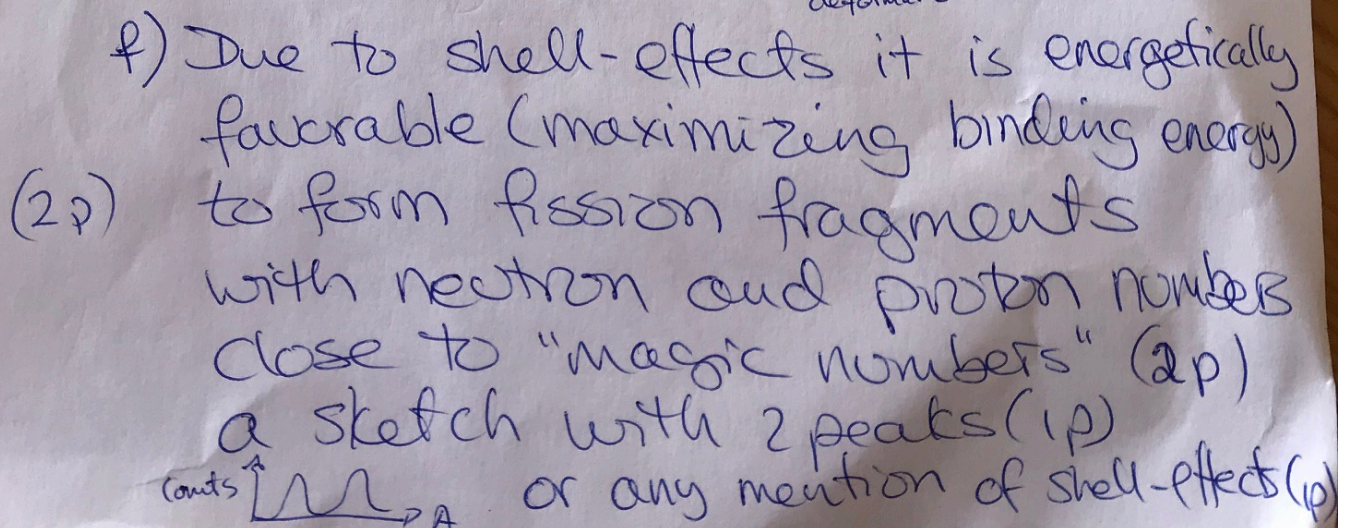 f) Due to shell-effects it is energetically
favorable (maximizing binding energy)
(2p) to form fission fragments
with neutron and proton numbers
close to "magic numbers" (2p)
a sketch with 2 peaks (1p)
Counts A or any mention of shell-effects (1p)